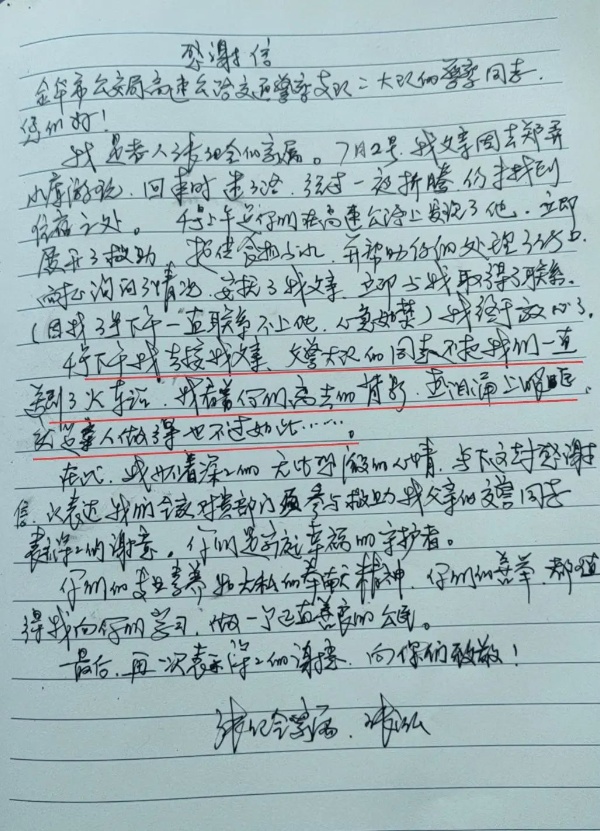 感谢信
金华市公安局高速公路交通警察支队二大队的警察同志.
你们好！
我是老人张纪全的家属。7月2号,我父亲回去郑弄
小康游玩,回来时迷了路,经过一夜折腾仍未找到
住宿之处。4号上午是你们在高速公路上发现了他,立即
展开了救助 提供食物与水,并帮助你们处理了伤口.
询问了情况,安抚了我父亲,立即与我取得了联系.
(因我3号下午一直联系不上他,心急如焚)我终于放心了.
4号下午我去接我父亲,交警大队的同志不走我们一直
送到了火车站,我看着你们离去的背影,热泪涌上眼眶.
就算亲人做得也不过如此……。
在此,我怀着深深的无比感激的心情,写下这封感谢
信,以表达我们全家对贵部门及参与救助我父亲的交警同志
表示深深的谢意。你们是家庭幸福的守护者。
你们的专业素养和大私的奉献精神,你们的善举,都值
得我向你们学习,做一个正直善良的公民。
最后,再一次表示深深的谢意,向你们致敬！
张纪全家属,张